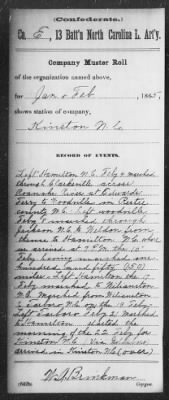 (Confederate.)
Co. E, 13 Batt'n North Carolina L. Art'y.
Company Muster Roll
of the organization named above,
for Jan & Feb, 1865.
shows station of company,
Kinston N.C.
RECORD OF EVENTS.
Left Hamilton N.C. Feby & marched
through Clarksville across
Roanoke River at Edwards
Ferry & Woodville in Bertie
county N.C. Left Woodville
Feby & marched through
Jackson N.C. & Weldon from
thence to Hamilton N.C. where
we arrived at 9 P.M. the 10th
Feby having marched one
hundred and fifty (150)
miles. Left Hamilton the
Feby marched to Williamston
N.C. Marched from Williamston
to Tarboro N.C. on the Feby
Left Tarboro Feby & marched
to Hamilton Started the
morning of the 22 Feby for
Kinston N.C. Via
arrived in Kinston N.C. (over)
W. A. Brinkman
Copyist.